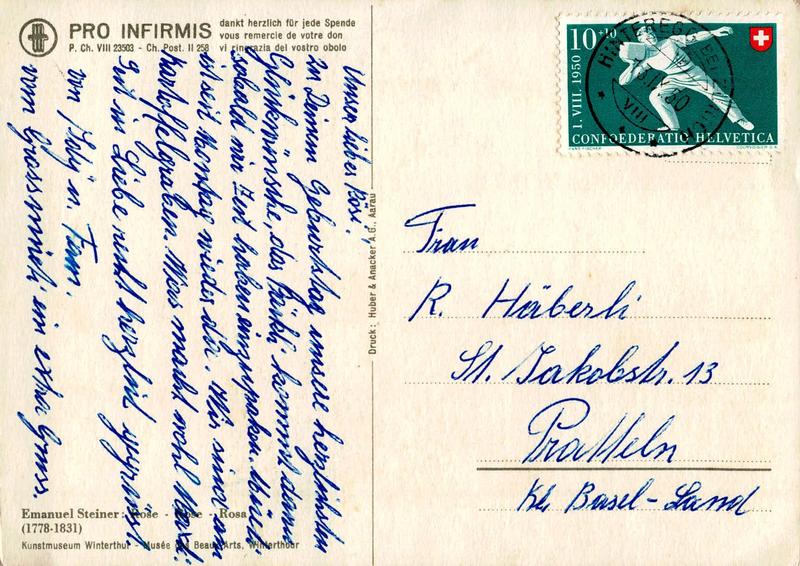 PRO INFIRMIS
P. Ch. VIII 23503 - Ch. Post. II 258
dankt herzlich für jede Spende
vous remercie de votre don
vi ringrazia del vostro obolo
Unser liebes Rösi,
zu Deinem Geburtstag unsere herzlichsten
Glückwünsche, das Päckli kommt dann
sobald wir Zeit haben einzupaken.
ist seit Montag wieder da. Wir sind am
Kartoffelgraben. Was macht wohl
Gut in Liebe recht herzlich gegrüsst
von u. Fam.
vom Grossmueti ein extra Gruss.
Emanuel Steiner: Rose - Rose - Rosa
(1778-1831)
Kunstmuseum Winterthur - Musée des Beaux Arts, Winterthour
Druck: Huber & Anacker A.G., Aarau
10+10
1. VIII. 1950
CONFOEDERATIO HELVETICA
HINTEREGG
VIII
Frau
R. Häberli
St. Jakobstr. 13
Pratteln
Kt. Basel-Land